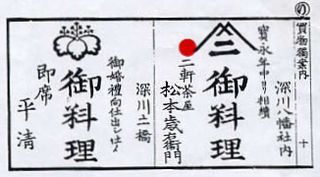 の
買物獨案内
十
深川八幡社内
寳永年中ゟ相續
二
御料理
二軒茶屋
松本歳右衛門
深川土橋
御婚禮向仕出し仕候
御料理
即席
平清